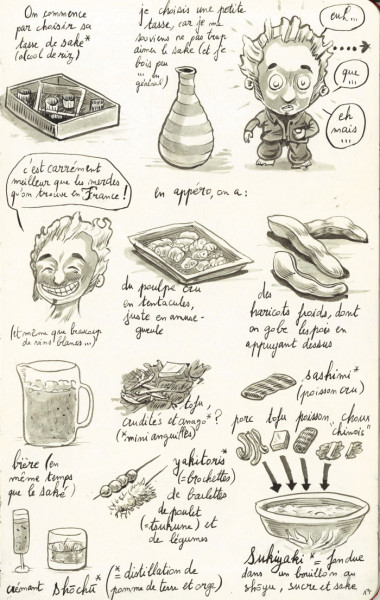 On commence
par choisir sa
tasse de saké*
(alcool de riz)
je choisis une petite
tasse, car je me
souviens ne pas trop
aimer le saké (et je
bois peu
... en
général)
euh...
que
...
eh
mais
...
c'est carrément
meilleur que les merdes
qu'on trouve en France !
(et même que beaucoup
de vins blancs...)
en appéro, on a :
du poulpe cru
en tentacules,
juste en amuse-
gueule
des
haricots froids, dont
on gobe les pois en
appuyant dessus
bière (en
même temps
que le saké)
tofu,
crudités et anago* ?
(* mini anguilles)
sashimi*
(poisson cru)
porc tofu poisson "choux
chinois"
yakitoris*
(= brochettes)
de boulettes
de poulet
(= tsukune) et
de légumes
crémant
shōchū*
(* = distillation de
pomme de terre et orge)
Sukiyaki* = fondue
dans un bouillon au
shōyu, sucre et saké